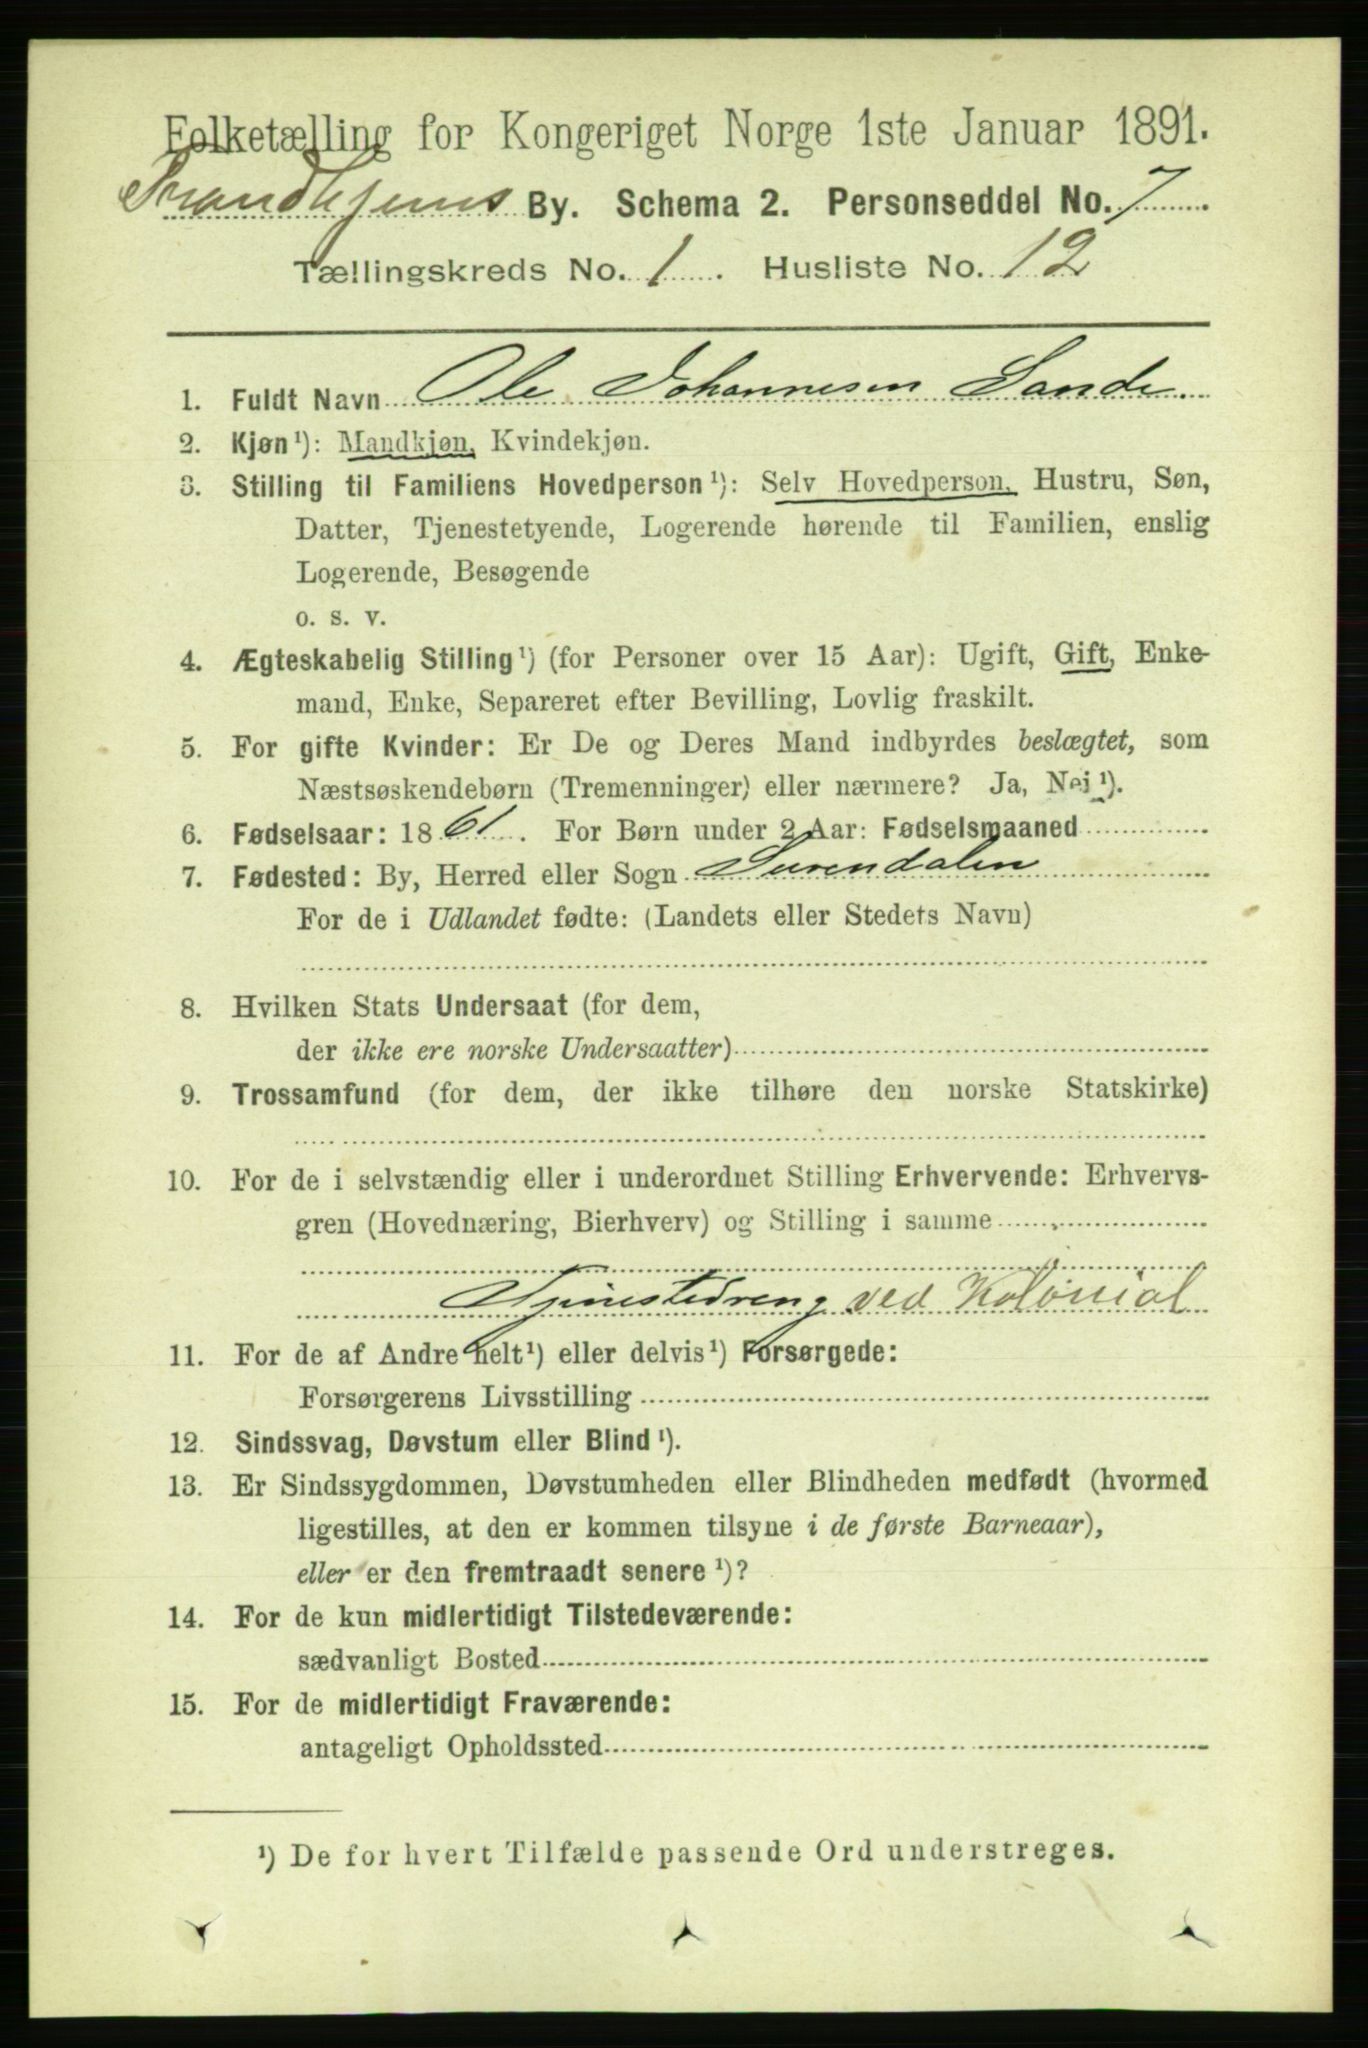 Folketælling for Kongeriget Norge 1ste Januar 1891.
Trondhjems By. Schema 2. Personseddel No. 7
Tællingskreds No. 1. Husliste No. 12
1. Fuldt Navn Ole Johannesen Sande.
2. Kjøn¹): Mandkjøn, Kvindekjøn.
3. Stilling til Familiens Hovedperson¹): Selv Hovedperson, Hustru, Søn,
Datter, Tjenestetyende, Logerende hørende til Familien, enslig
Logerende, Besøgende
o. s. v.
4. Ægteskabelig Stilling¹) (for Personer over 15 Aar): Ugift, Gift, Enke-
mand, Enke, Separeret efter Bevilling, Lovlig fraskilt.
5. For gifte Kvinder: Er De og Deres Mand indbyrdes beslægtet, som
Næstsøskendebørn (Tremenninger) eller nærmere? Ja, Nei¹).
6. Fødselsaar: 1861. For Børn under 2 Aar: Fødselsmaaned
7. Fødested: By, Herred eller Sogn Surendalen
For de i Udlandet fødte: (Landets eller Stedets Navn)
8. Hvilken Stats Undersaat (for dem,
der ikke ere norske Undersaatter)
9. Trossamfund (for dem, der ikke tilhøre den norske Statskirke)
10. For de i selvstændig eller i underordnet Stilling Erhvervende: Erhvervs-
gren (Hovednæring, Bierhverv) og Stilling i samme
Tjenestedreng ved Kolonial
11. For de af Andre helt¹) eller delvis¹) Forsørgede:
Forsørgerens Livsstilling
12. Sindssvag, Døvstum eller Blind¹).
13. Er Sindssygdommen, Døvstumheden eller Blindheden medfødt (hvormed
ligestilles, at den er kommen tilsyne i de første Barneaar),
eller er den fremtraadt senere¹)?
14. For de kun midlertidigt Tilstedeværende:
sædvanligt Bosted
15. For de midlertidigt Fraværende:
antageligt Opholdssted
¹) De for hvert Tilfælde passende Ord understreges.